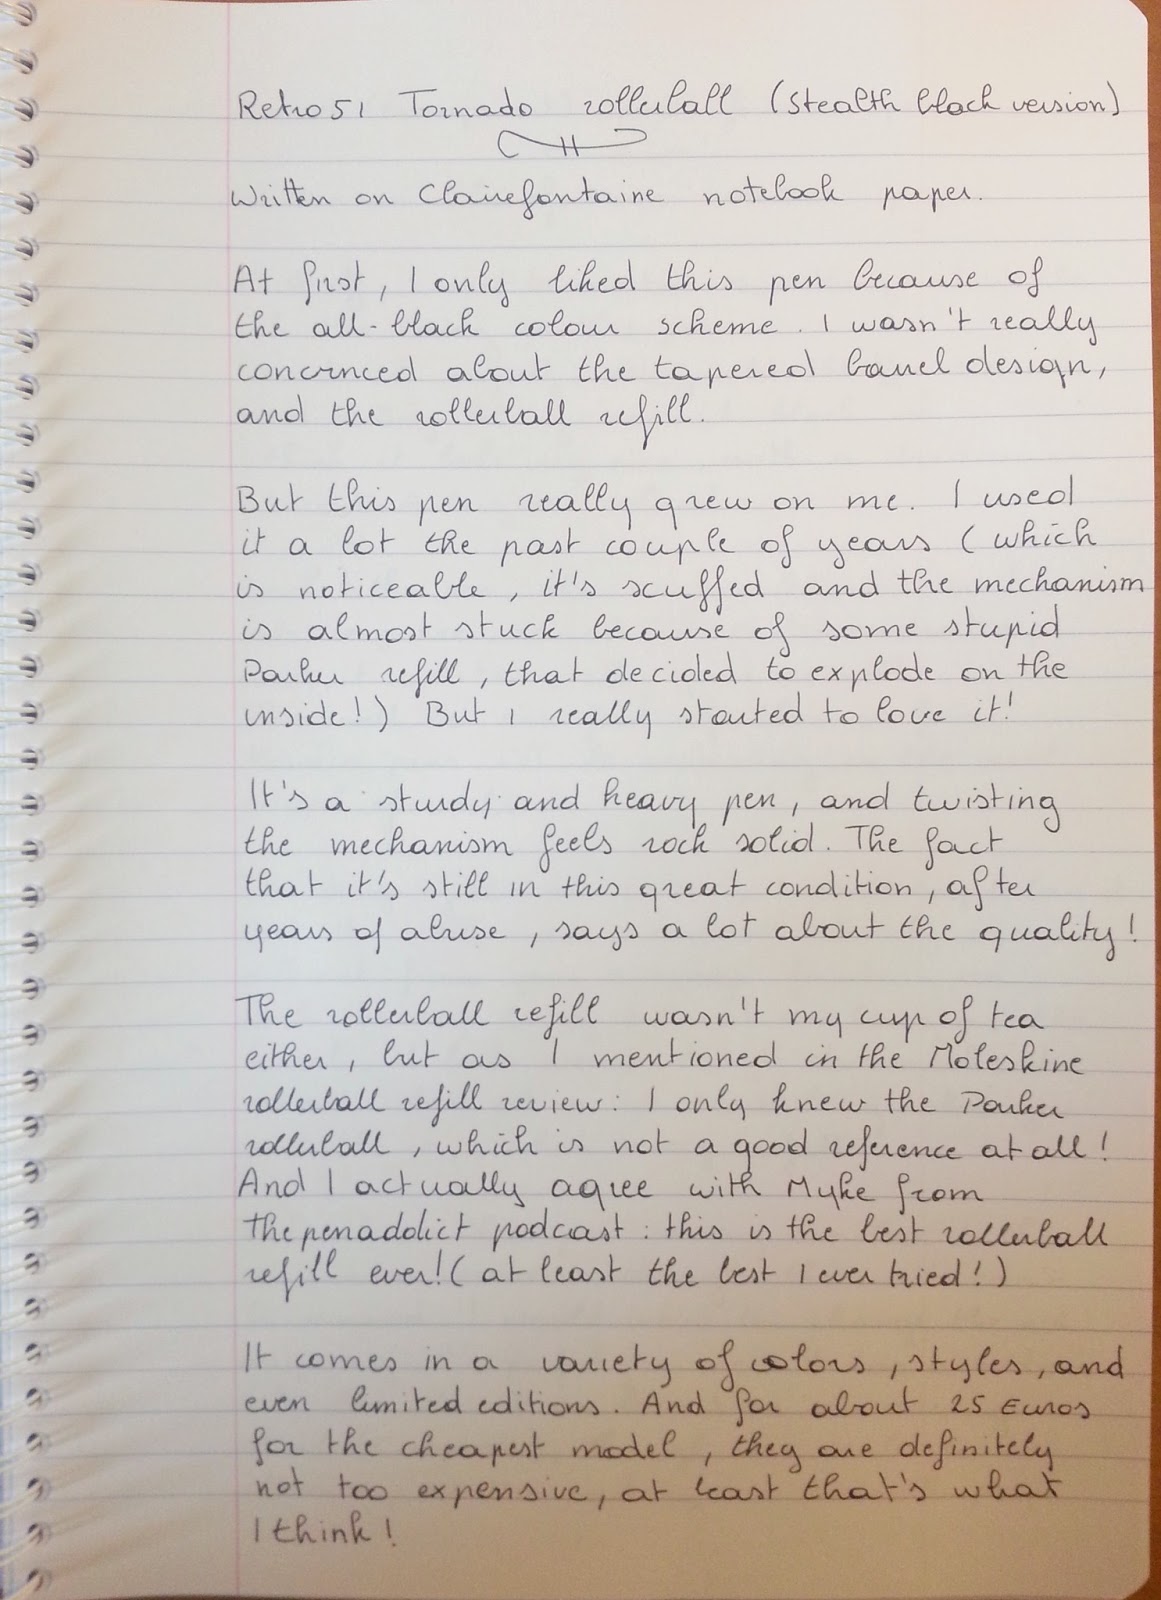 Retro 51 Tornado rollerball (stealth black version)
Written on Clairefontaine notebook paper.
At first, I only liked this pen because of
the all-black colour scheme. I wasn't really
convinced about the tapered barrel design,
and the rollerball refill.
But this pen really grew on me. I used
it a lot the past couple of years (which
is noticeable, it's scuffed and the mechanism
is almost stuck because of some stupid
Parker refill, that decided to explode on the
inside!) But I really started to love it!
It's a sturdy and heavy pen, and twisting
the mechanism feels rock solid. The fact
that it's still in this great condition, after
years of abuse, says a lot about the quality!
The rollerball refill wasn't my cup of tea
either, but as I mentioned in the Moleskine
rollerball refill review: I only knew the Parker
rollerball, which is not a good reference at all!
And I actually agree with Myke from
thepenaddict podcast: this is the best rollerball
refill ever! (at least the best I ever tried!)
It comes in a variety of colors, styles, and
even limited editions. And for about 25 Euros
for the cheapest model, they are definitely
not too expensive, at least that's what
I think!